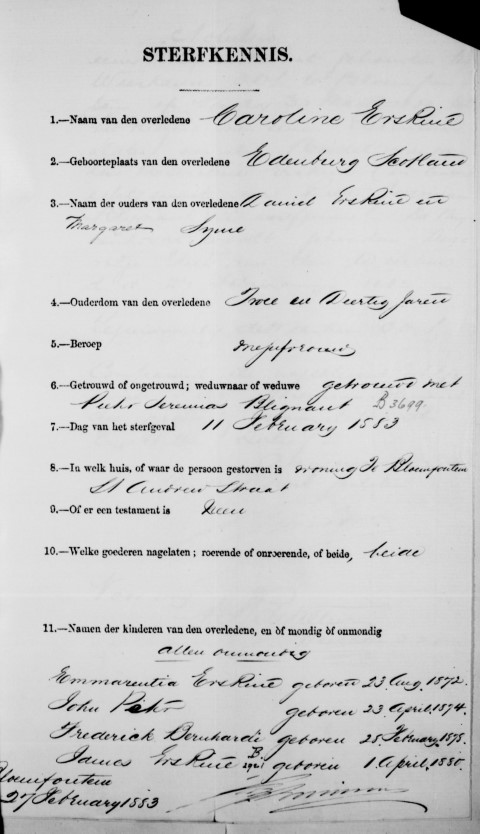 STERFKENNIS.
1.—Naam van den overledene Caroline Erskine
2.—Geboorteplaats van den overledene Edenburg Scotland
3.—Naam der ouders van den overledene Daniel Erskine en
Margaret Syme
4.—Ouderdom van den overledene Twee en Deertig Jaren
5.—Beroep mejufvrouw
6.—Getrouwd of ongetrouwd; weduwnaar of weduwe getrouwd met
Pieter Jeremias Blignaut B3699.
7.—Dag van het sterfgeval 11 February 1883
8.—In welk huis, of waar de persoon gestorven is woning te Bloemfontein
St Andrew Straat
9.—Of er een testament is Neen
10.—Welke goederen nagelaten; roerende of onroerende, of beide, beide
11.—Namen der kinderen van den overledene, en òf mondig òf onmondig
allen onmondig
Emmarentia Erskine geboren 23 Aug. 1872.
John Pieter geboren 23 April, 1874.
Frederick Bernhardi geboren 25 February, 1878.
James Erskine B geboren 1 April, 1880.
Bloemfontein
27 February 1883